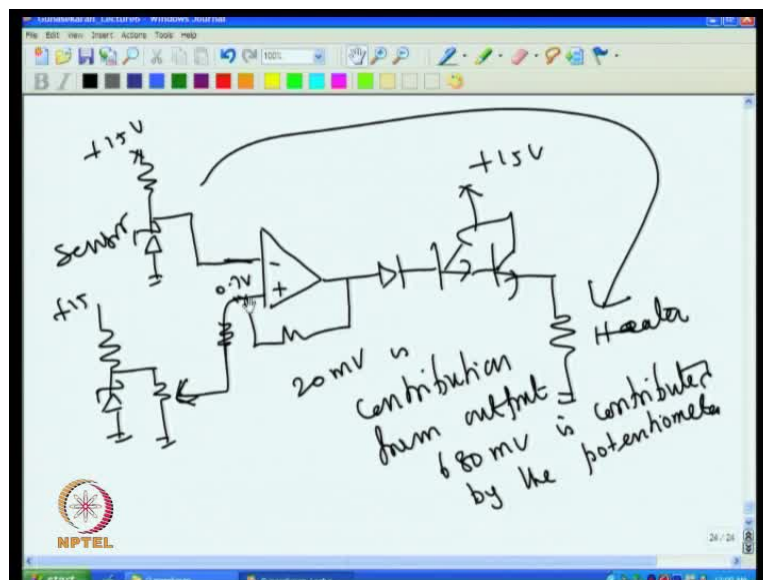 Gunasekaran_Lecture6 - Windows Journal
File Edit View Insert Actions Tools Help
100%
B I
+15V
+15V
Sensor
-
0.7V
+
+15
Heater
20mV is
contribution
from output
680mV is contributed
by the potentiometer
NPTEL
24 / 24
start